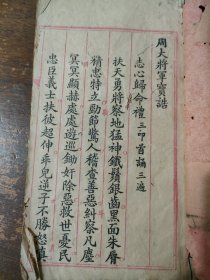 周大將軍寶誥
志心歸命禮 三叩首誦三遍
扶天勇將察地猛神鐵鬚銀齒黑面朱唇
精忠特立勁節驚人稽查善惡糾察凡塵
冥冥顯赫處處遊巡鋤奸除惡救世憂民
忠臣義士扶彼超伸乖兒逆子不勝怒真